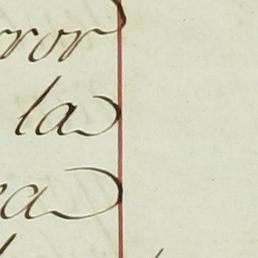 rror
la
ea